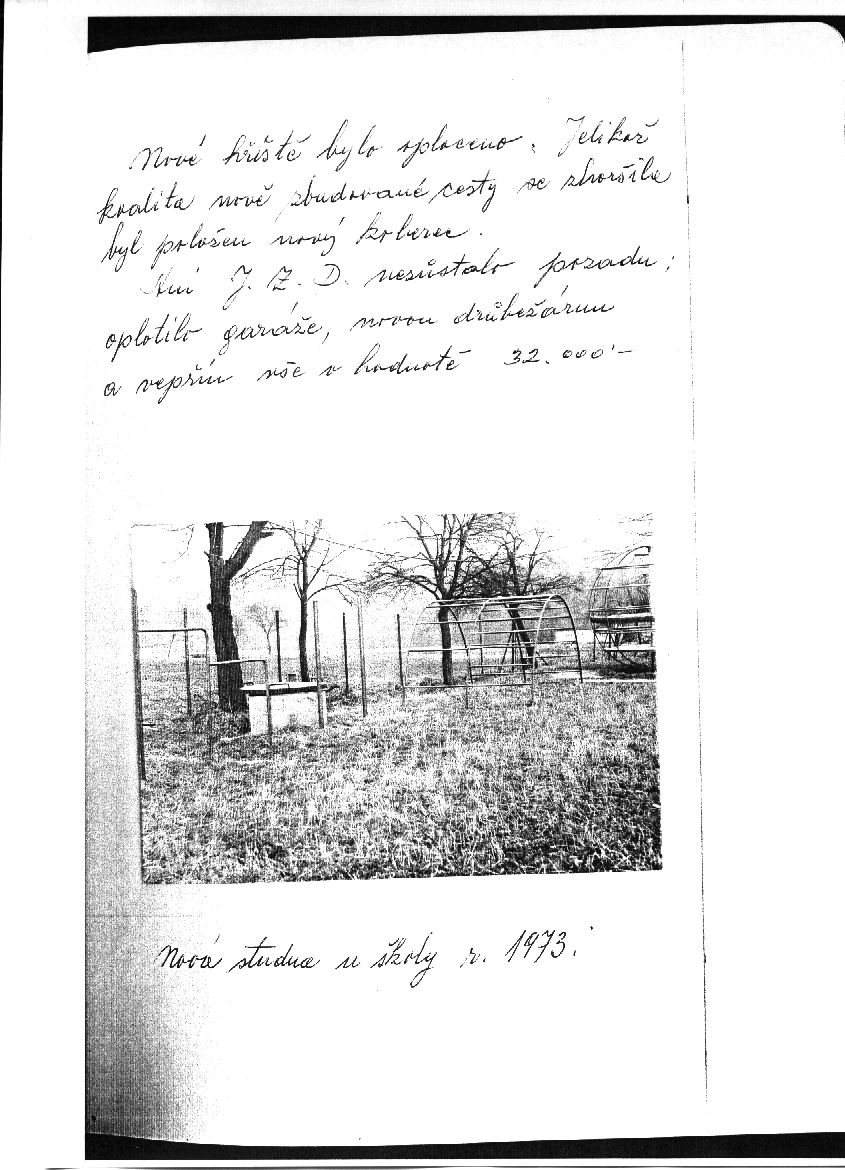 Nové hřiště bylo oploceno. Jelikož
kvalita nově zbudované cesty se zhoršila
byl položen nový koberec.
Ani J. Z. D. nezůstalo pozadu;
oplotilo garáže, novou drůbežárnu
a vepřín vše v hodnotě 32.000'-
Nová studna u školy r. 1973.